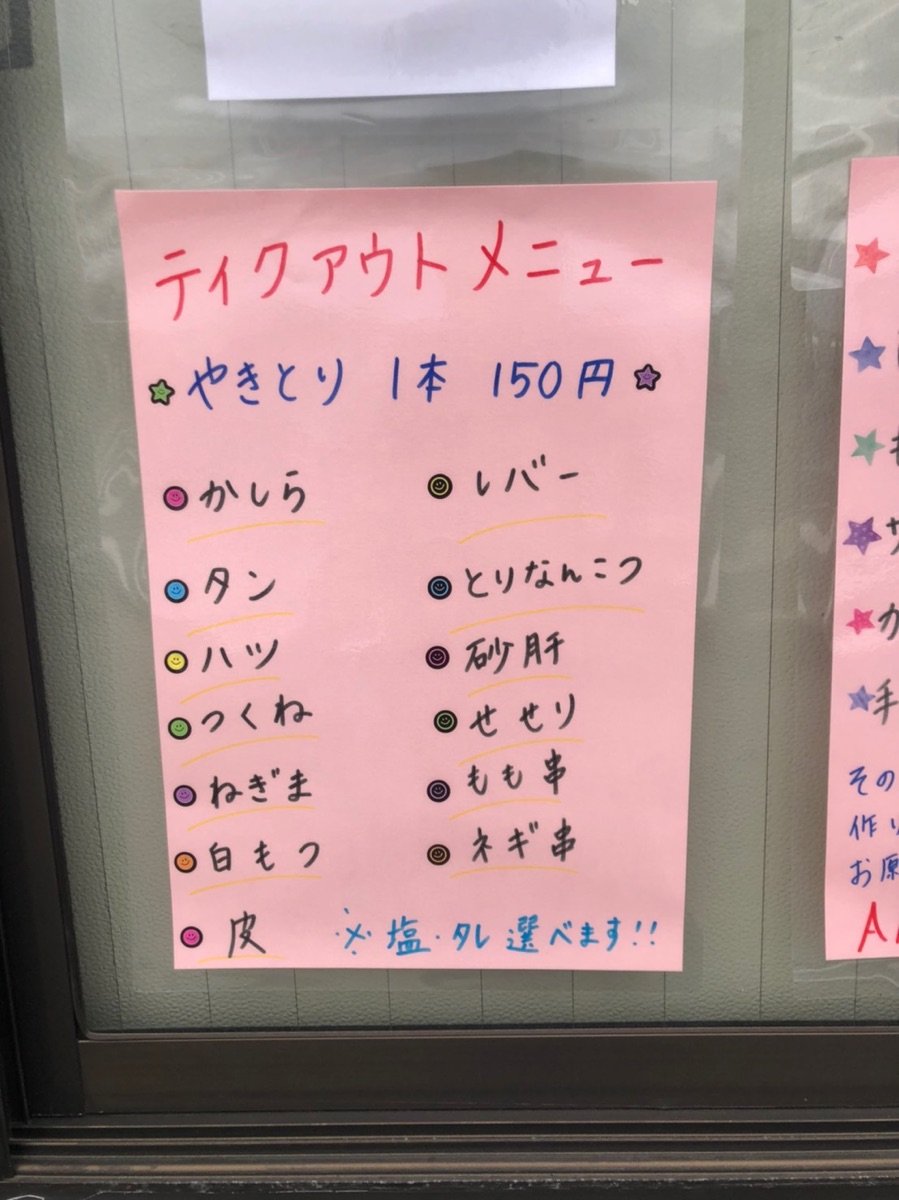 ティクアウトメニュー
やきとり 1本 150円
かしら
タン
ハツ
つくね
ねぎま
白もつ
皮
レバー
とりなんこつ
砂肝
せせり
もも串
ネギ串
※塩・タレ選べます!!
その
作り
お原